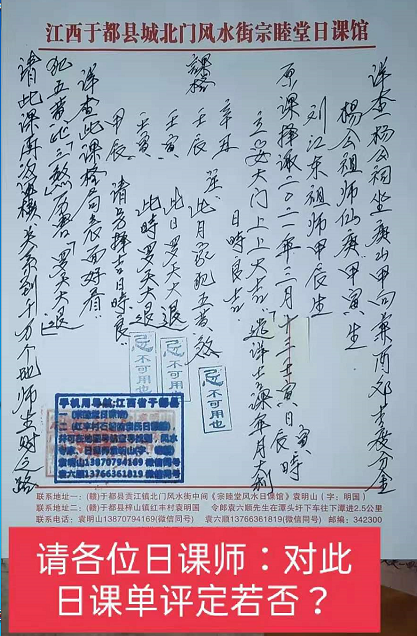 江西于都县城北门风水街宗睦堂日课馆
详查杨公祠坐庚山甲向兼酉卯分金
杨公祖师仙庚甲寅生
刘江东祖师甲辰生
原课择诹二0二一年三月十三壬寅日辰时
立安大门上上大吉 详吉课年月大利
日时良吉
课格
辛丑
壬辰 此月家犯五黄煞 忌不可用也
壬寅 此日罗天大退 忌不可用也
甲辰 此时罗天大退 忌不可用也
请另择吉日时良
详查此课格局表面好看
犯五黄此三煞厉害罗天大退
请此课再次关系到千万个地师生财之路
手机用导航:江西省于都县
袁明山13870794169(微信同号)
袁六顺13766361819(微信同号)
联系地址一:(赣)于都县贡江镇北门风水街中间《宗睦堂风水日课馆》袁明山(字:明国)
联系地址二:(赣)于都县梓山镇红丰村袁明国 令郎袁六顺先生在潭头圩下车往下潭进2.5公里
联系电话:袁明山13870794169(微信同号) 袁六顺13766361819(微信同号) 邮编:342300
请各位日课师：对此
日课单评定若否？